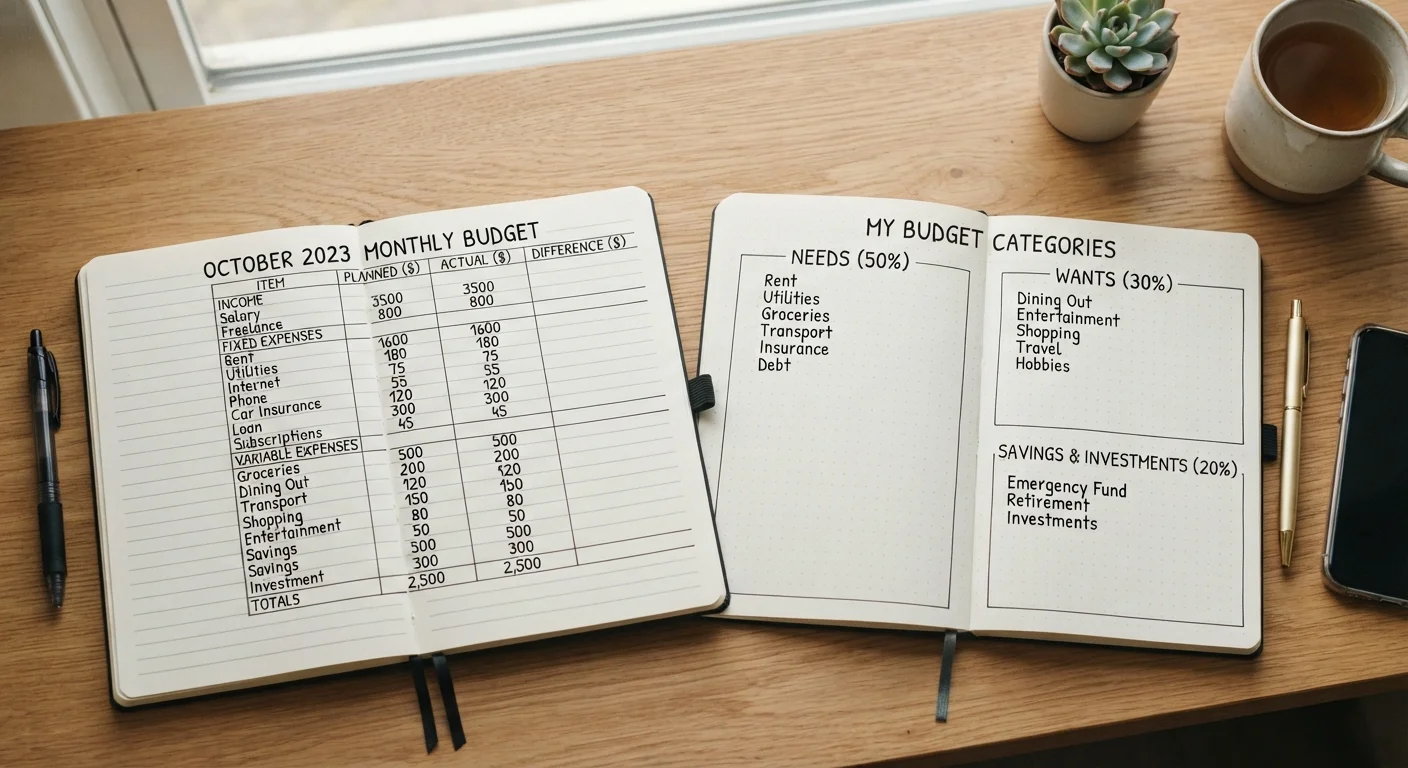 OCTOBER 2023 MONTHLY BUDGET
ITEM PLANNED ($) ACTUAL ($) DIFFERENCE ($)
INCOME
Salary 3500 3500
Freelance 800 800
FIXED EXPENSES
Rent 1600 1600
Utilities 180 180
Internet 75 75
Phone 55 55
Car Insurance 120 120
Loan 300 300
Subscriptions 45 45
VARIABLE EXPENSES
Groceries 500 500
Dining Out 200 200
Transport 120 120
Shopping 150 150
Entertainment 80 80
Savings 50 50
Savings 500 500
Investment 300 300
TOTALS 2,500 2,500
MY BUDGET CATEGORIES
NEEDS (50%)
Rent
Utilities
Groceries
Transport
Insurance
Debt
WANTS (30%)
Dining Out
Entertainment
Shopping
Travel
Hobbies
SAVINGS & INVESTMENTS (20%)
Emergency Fund
Retirement
Investments